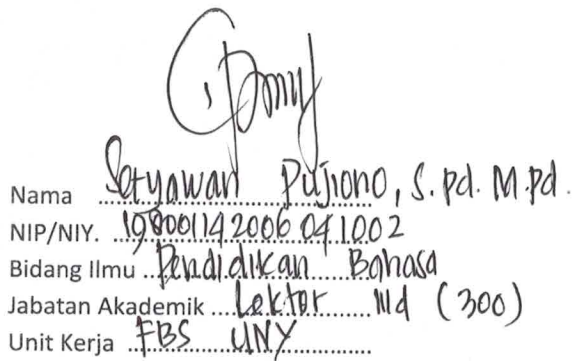 Nama Setyawan Pujiono, S.Pd. M.Pd.
NIP/NIY. 19800114 2006 04 1 002
Bidang Ilmu Pendidikan Bahasa
Jabatan Akademik Lektor IIId (300)
Unit Kerja FBS UNY